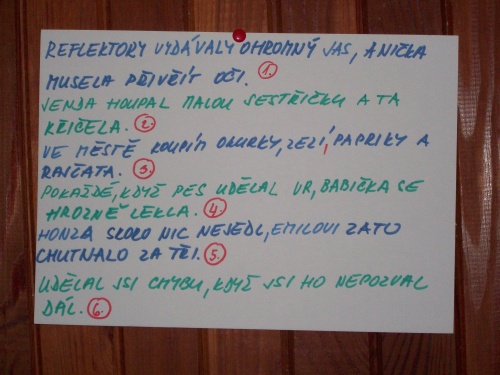 REFLEKTORY VYDÁVALY OHROMNÝ JAS, ANIČKA
MUSELA PŘIVŘÍT OČI. 1.
JENDA HOUPAL MALOU SESTŘIČKU A TA
KŘIČELA. 2.
VE MĚSTĚ KOUPÍM OKURKY, ZELÍ, PAPRIKY A
RAJČATA. 3.
POKAŽDÉ, KDYŽ PES UDĚLAL VR, BABIČKA SE
HROZNĚ LEKLA. 4.
HONZA SKORO NIC NEJEDL, EMILOVI ZATO
CHUTNALO ZA TŘI. 5.
UDĚLAL JSI CHYBU, KDYŽ JSI HO NEPOZVAL
DÁL. 6.